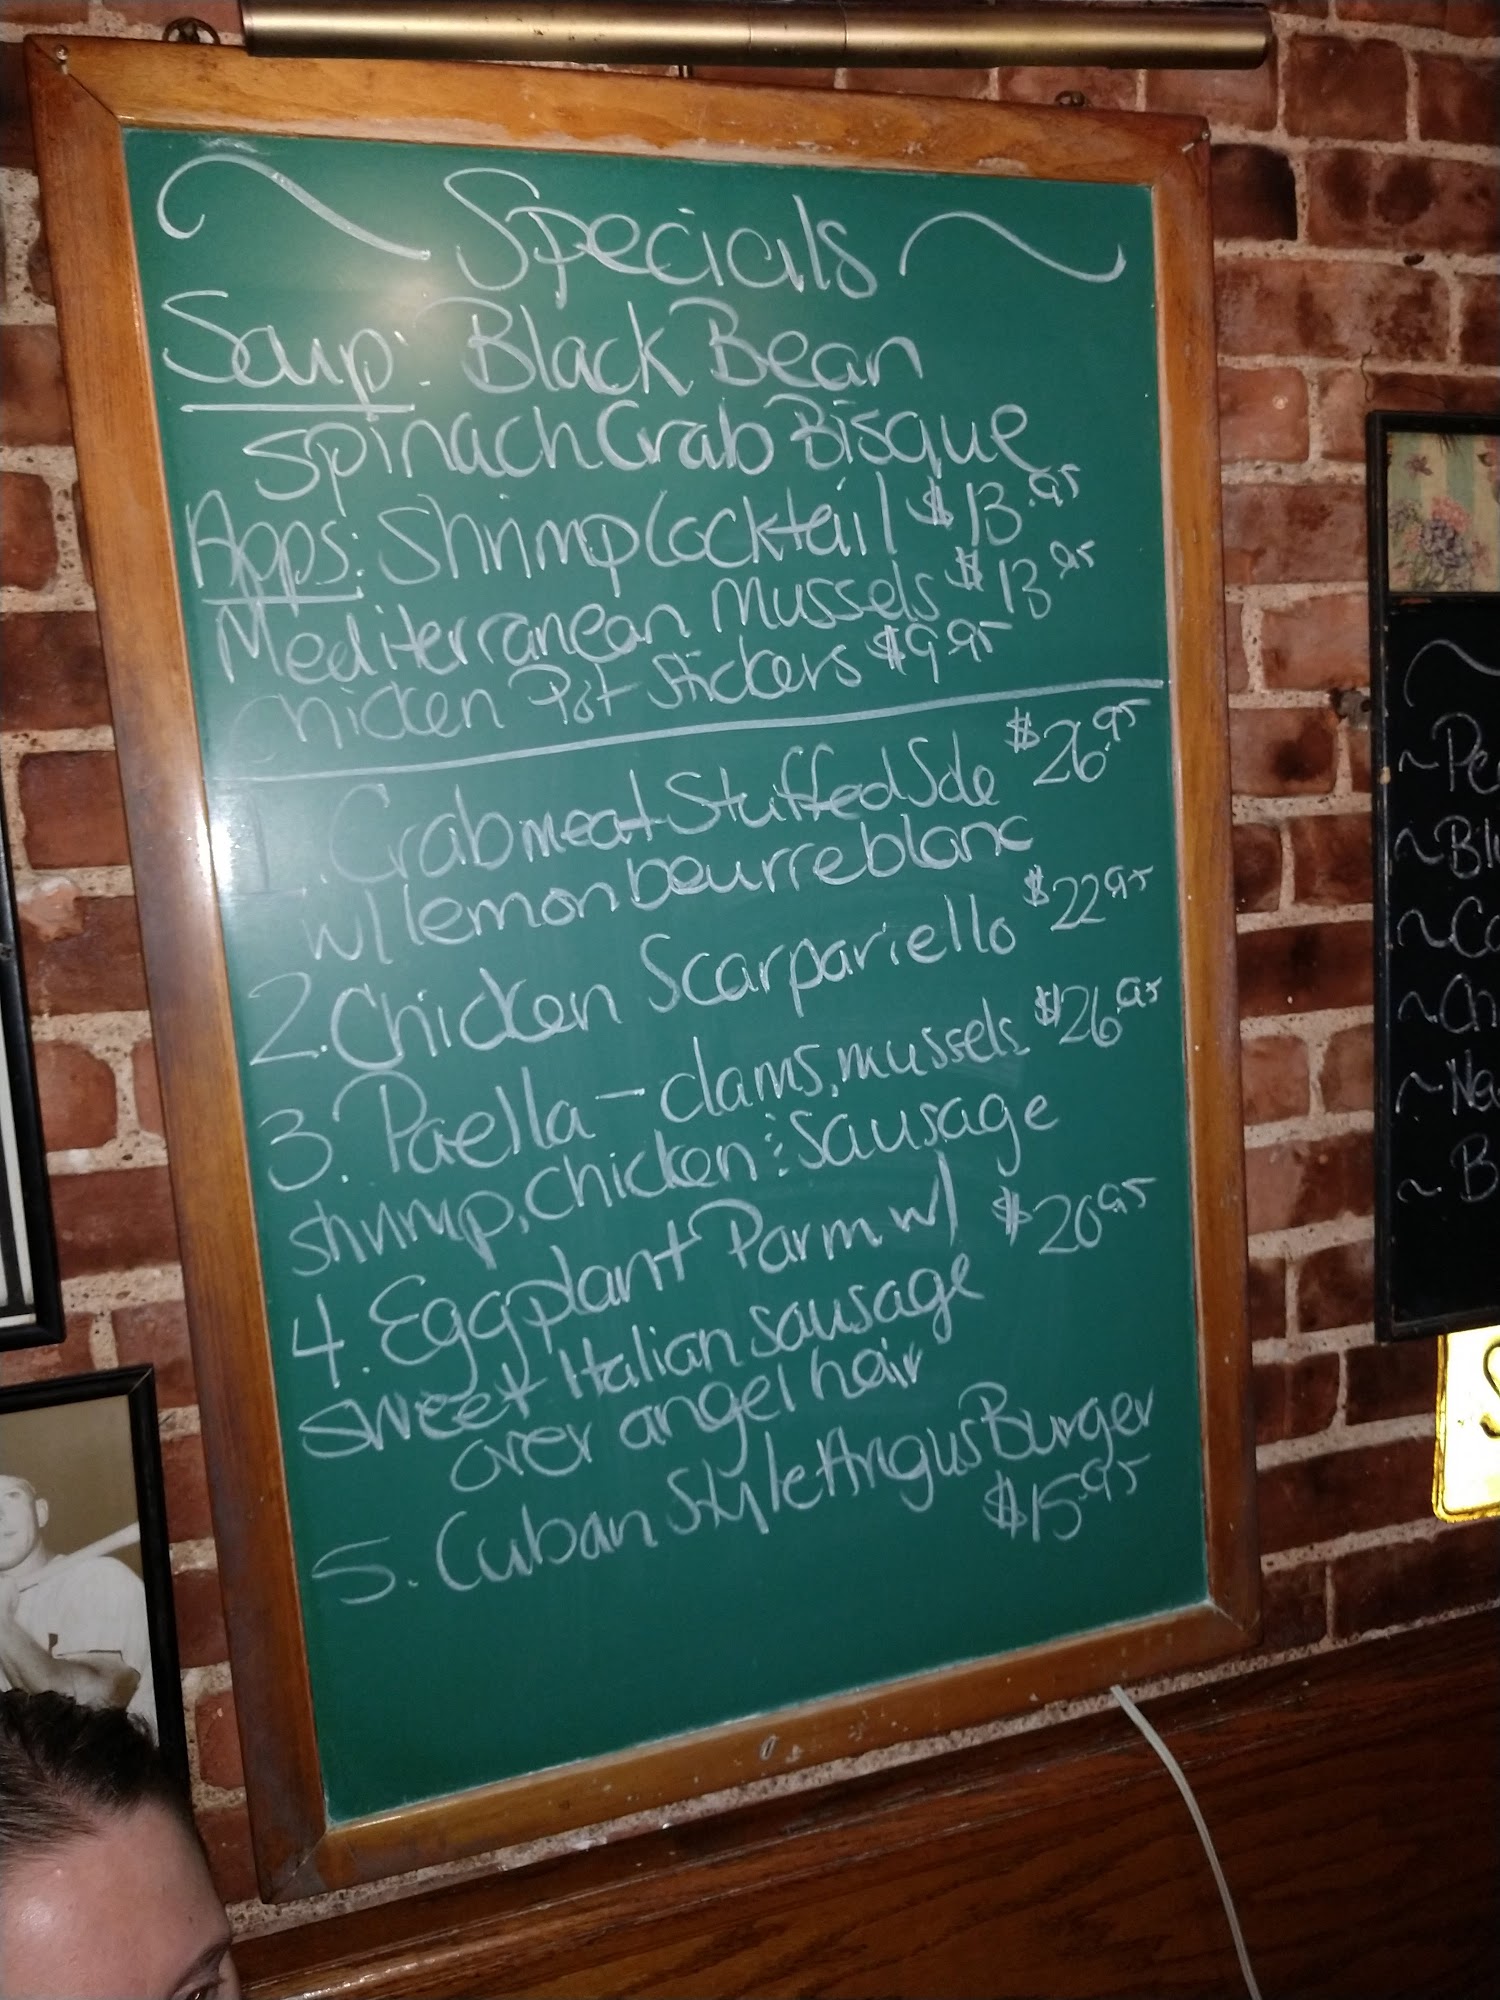 ~ Specials ~
Soup: Black Bean
Spinach Crab Bisque
Apps: Shrimp Cocktail $13.95
Mediterranean Mussels $13.95
Chicken Pot Stickers $9.95
1. Crabmeat Stuffed Sole $26.95
w/ lemon beurre blanc
2. Chicken Scarpariello $22.95
3. Paella - clams, mussels $26.95
shrimp, chicken & sausage
4. Eggplant Parm w/ $20.95
sweet Italian sausage
over angel hair
5. Cuban Style Angus Burger
$15.95
~
~ Pe
~ Bl
~ Co
~ Ch
~ Na
~ B
S